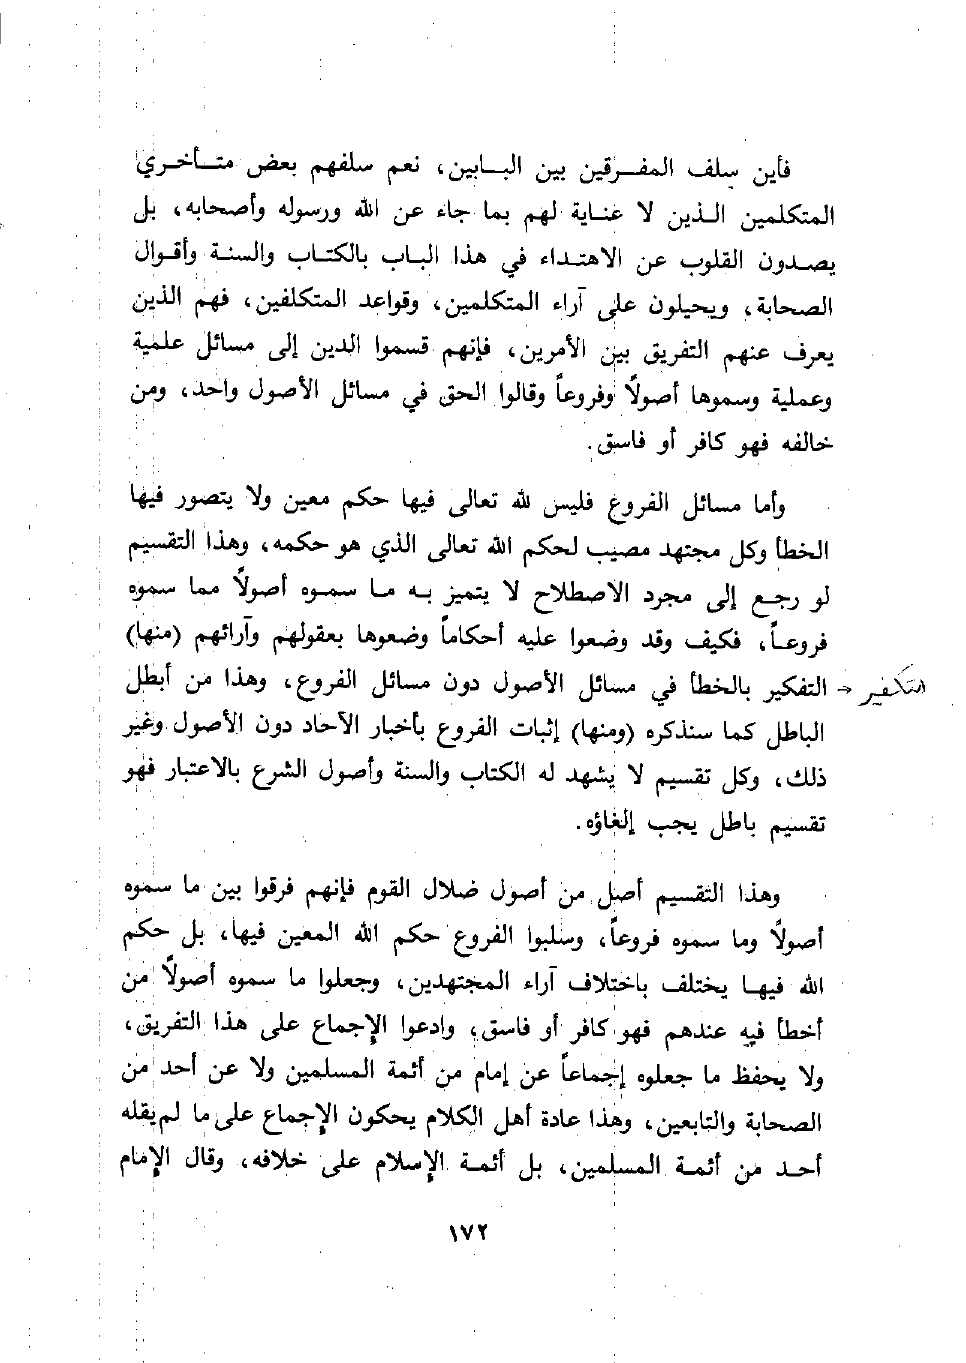 فأين سلف المفرقين بين البابين، نعم سلفهم بعض متأخري
المتكلمين الذين لا عناية لهم بما جاء عن الله ورسوله وأصحابه، بل
يصدون القلوب عن الاهتداء في هذا الباب بالكتاب والسنة وأقوال
الصحابة، ويحيلون على آراء المتكلمين، وقواعد المتكلفين، فهم الذين
يعرف عنهم التفريق بين الأمرين، فإنهم قسموا الدين إلى مسائل علمية
وعملية وسموها أصولاً وفروعاً وقالوا الحق في مسائل الأصول واحد، ومن
خالفه فهو كافر أو فاسق.
وأما مسائل الفروع فليس لله تعالى فيها حكم معين ولا يتصور فيها
الخطأ وكل مجتهد مصيب لحكم الله تعالى الذي هو حكمه، وهذا التقسيم
لو رجع إلى مجرد الاصطلاح لا يتميز به ما سموه أصولاً مما سموه
فروعاً، فكيف وقد وضعوا عليه أحكاماً وضعوها بعقولهم وآرائهم (منها)
التفكير بالخطأ في مسائل الأصول دون مسائل الفروع، وهذا من أبطل
التكفير
الباطل كما سنذكره (ومنها) إثبات الفروع بأخبار الآحاد دون الأصول وغير
ذلك، وكل تقسيم لا يشهد له الكتاب والسنة وأصول الشرع بالاعتبار فهو
تقسيم باطل يجب إلغاؤه.
وهذا التقسيم أصل من أصول ضلال القوم فإنهم فرقوا بين ما سموه
أصولاً وما سموه فروعاً، وسلبوا الفروع حكم الله المعين فيها، بل حكم
الله فيها يختلف باختلاف آراء المجتهدين، وجعلوا ما سموه أصولاً من
أخطأ فيه عندهم فهو كافر أو فاسق، وادعوا الإجماع على هذا التفريق،
ولا يحفظ ما جعلوه إجماعاً عن إمام من أئمة المسلمين ولا عن أحد من
الصحابة والتابعين، وهذا عادة أهل الكلام يحكون الإجماع على ما لم يقله
أحد من أئمة المسلمين، بل أئمة الإسلام على خلافه، وقال الإمام
١٧٢